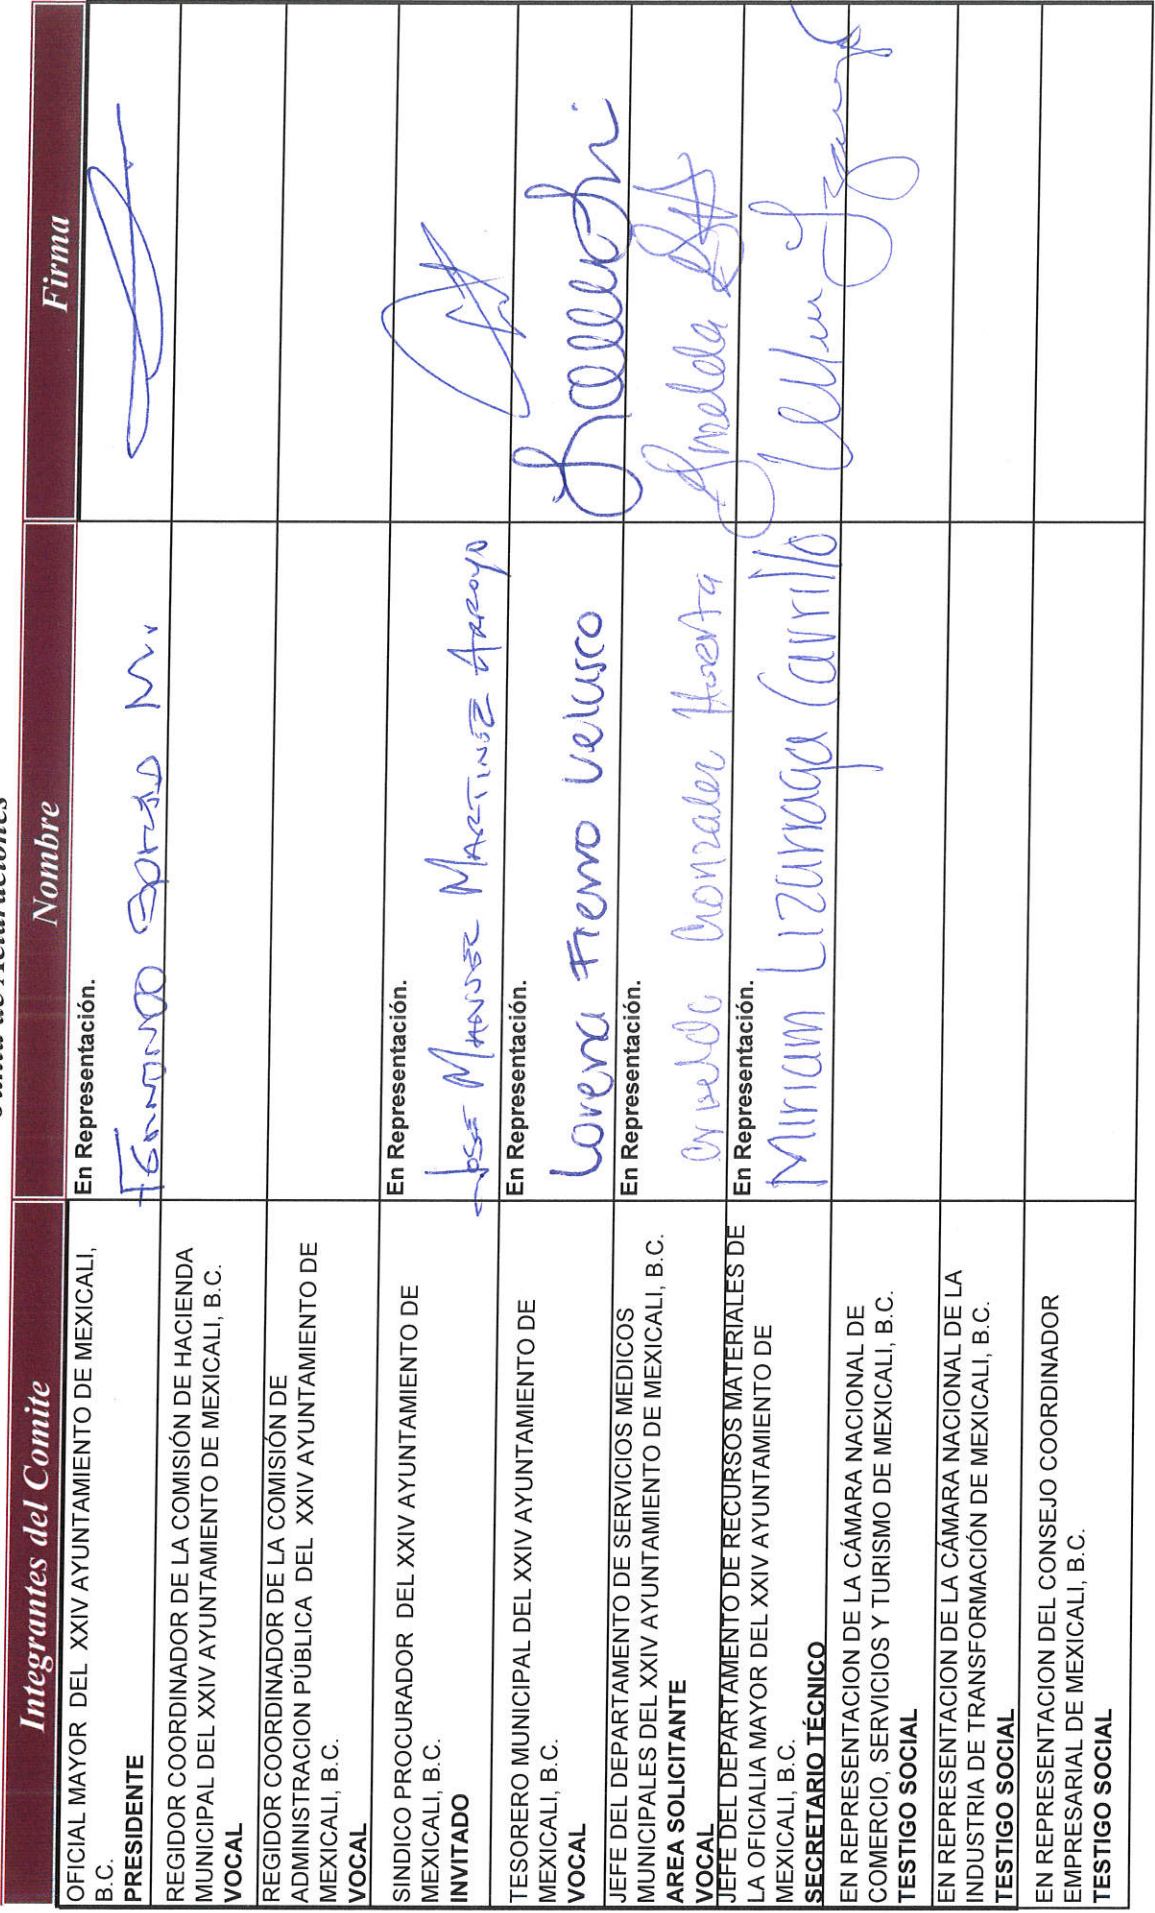 Junta de Aclaraciones
Integrantes del Comite
Nombre
Firma
OFICIAL MAYOR DEL XXIV AYUNTAMIENTO DE MEXICALI,
B.C.
PRESIDENTE
En Representación.
REGIDOR COORDINADOR DE LA COMISIÓN DE HACIENDA
MUNICIPAL DEL XXIV AYUNTAMIENTO DE MEXICALI, B.C.
VOCAL
REGIDOR COORDINADOR DE LA COMISIÓN DE
ADMINISTRACION PÚBLICA DEL XXIV AYUNTAMIENTO DE
MEXICALI, B.C.
VOCAL
SINDICO PROCURADOR DEL XXIV AYUNTAMIENTO DE
MEXICALI, B.C.
INVITADO
En Representación.
José Manuel Martinez Arroyo
TESORERO MUNICIPAL DEL XXIV AYUNTAMIENTO DE
MEXICALI, B.C.
VOCAL
En Representación.
Lorena Fierro Velasco
JEFE DEL DEPARTAMENTO DE SERVICIOS MEDICOS
MUNICIPALES DEL XXIV AYUNTAMIENTO DE MEXICALI, B.C.
AREA SOLICITANTE
VOCAL
En Representación.
Gonzalez Huerta
Imelda
JEFE DEL DEPARTAMENTO DE RECURSOS MATERIALES DE
LA OFICIALIA MAYOR DEL XXIV AYUNTAMIENTO DE
MEXICALI, B.C.
SECRETARIO TÉCNICO
En Representación.
Miriam Lizarraga Carrillo
EN REPRESENTACION DE LA CÁMARA NACIONAL DE
COMERCIO, SERVICIOS Y TURISMO DE MEXICALI, B.C.
TESTIGO SOCIAL
EN REPRESENTACION DE LA CÁMARA NACIONAL DE LA
INDUSTRIA DE TRANSFORMACIÓN DE MEXICALI, B.C.
TESTIGO SOCIAL
EN REPRESENTACION DEL CONSEJO COORDINADOR
EMPRESARIAL DE MEXICALI, B.C.
TESTIGO SOCIAL